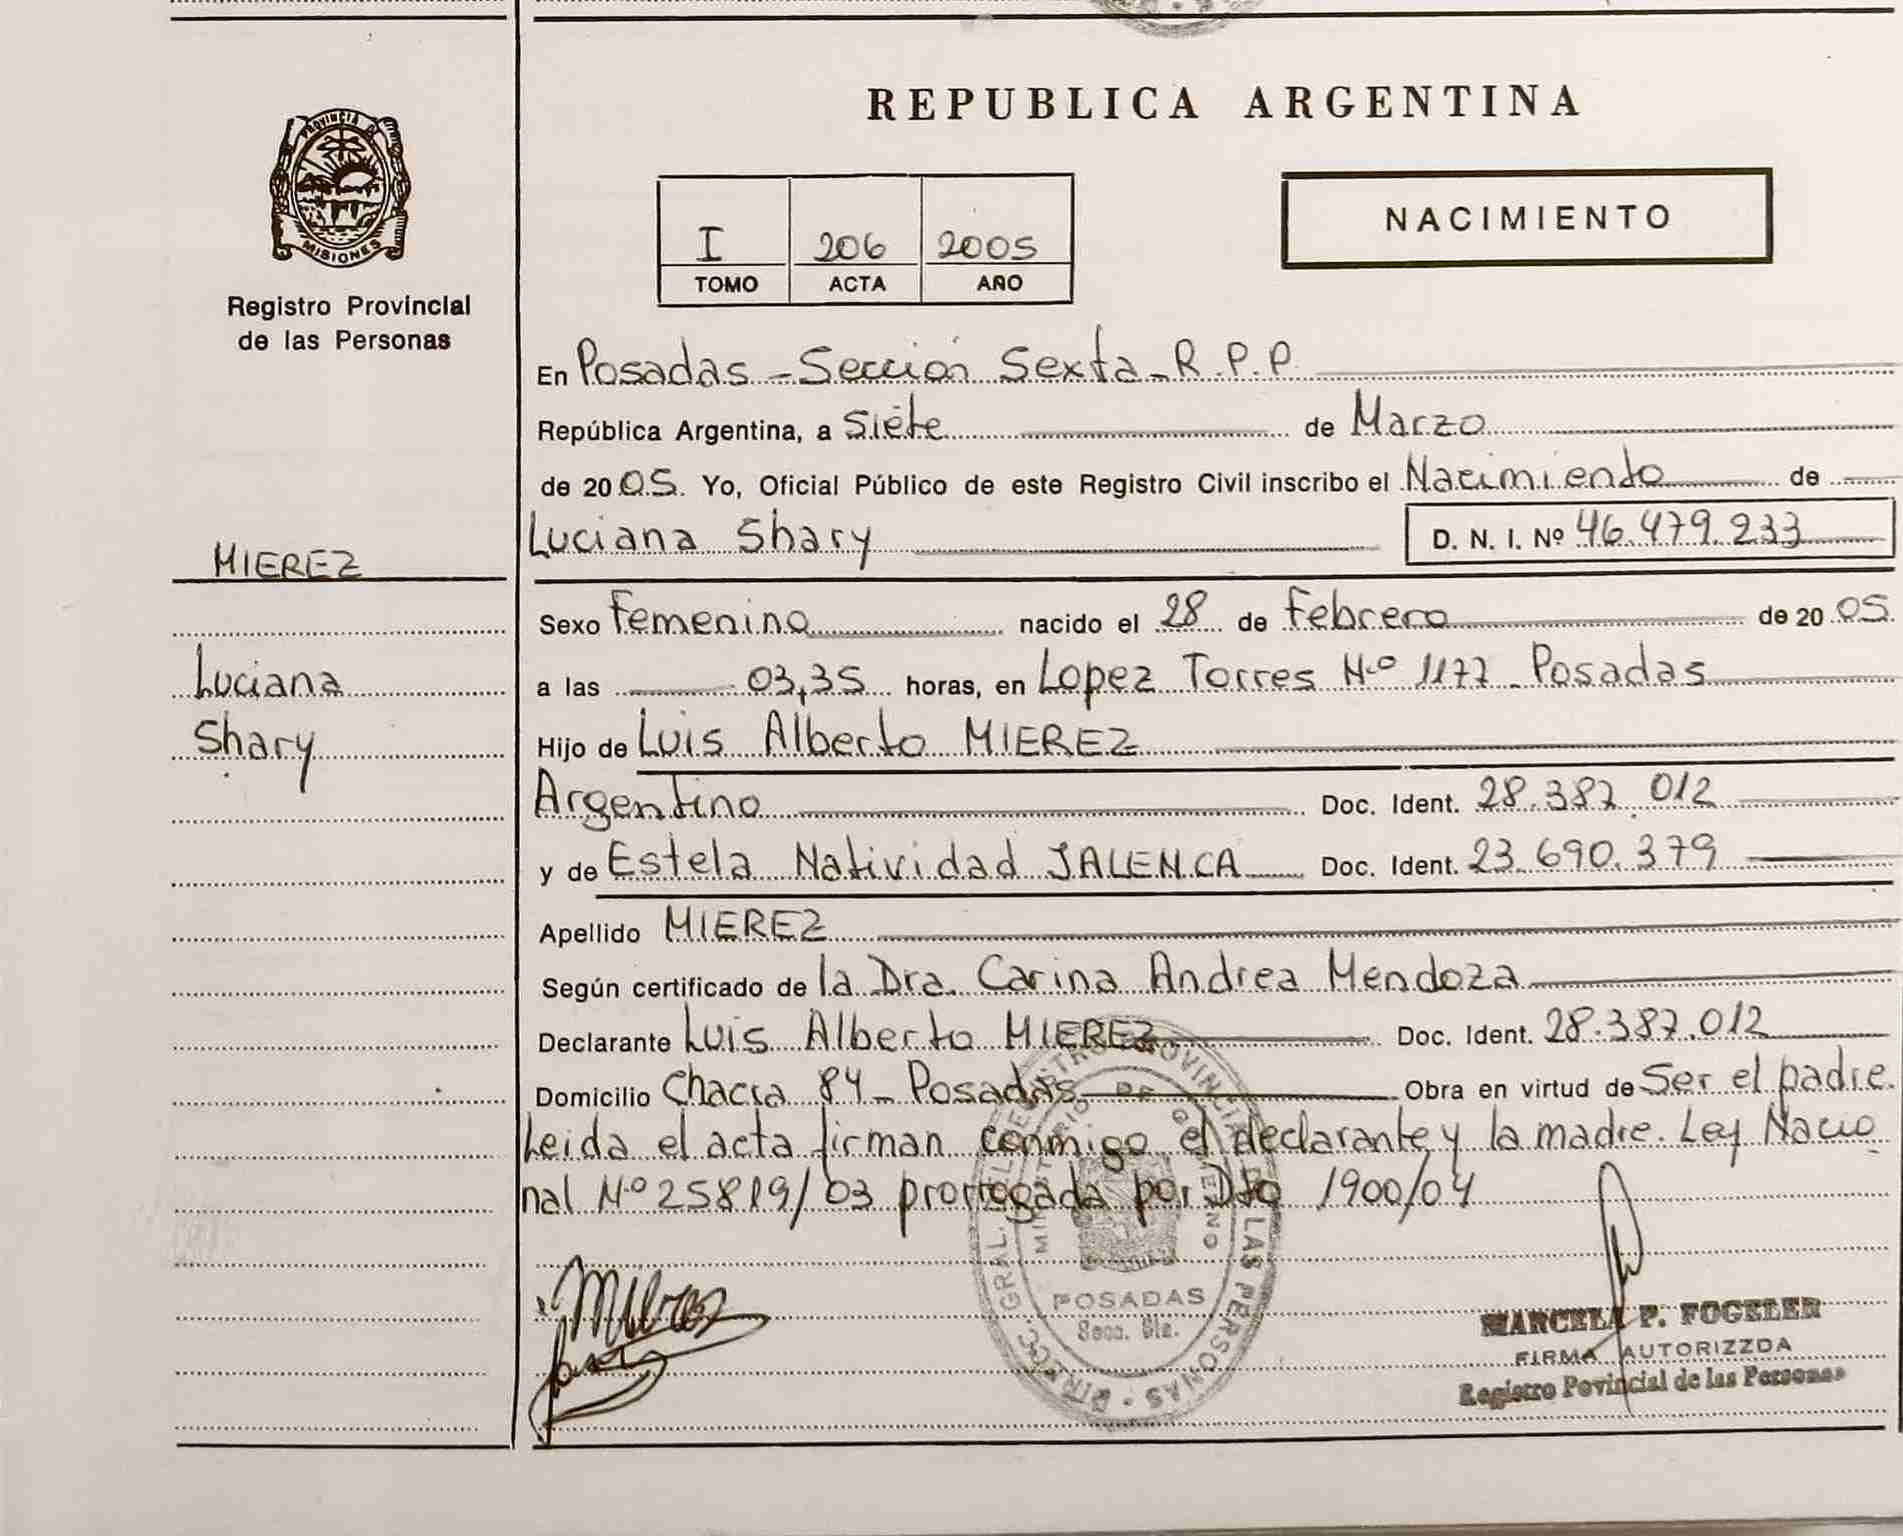 REPUBLICA ARGENTINA
PROVINCIA DE
MISIONES
Registro Provincial
de las Personas
I 206 2005
TOMO ACTA AÑO
NACIMIENTO
En Posadas - Sección Sexta - R.P.P.
República Argentina, a Siete de Marzo
de 2005. Yo, Oficial Público de este Registro Civil inscribo el Nacimiento de
Luciana Shary D. N. I. Nº 46.479.233
MIEREZ
Luciana
Shary
Sexo Femenino nacido el 28 de Febrero de 2005.
a las 03,35 horas, en Lopez Torres Nº 1177 - Posadas
Hijo de Luis Alberto MIEREZ
Argentino Doc. Ident. 28.387.012
y de Estela Natividad JALENCA Doc. Ident. 23.690.379
Apellido MIEREZ
Según certificado de la Dra. Carina Andrea Mendoza
Declarante Luis Alberto MIEREZ Doc. Ident. 28.387.012
Domicilio Chacra 84 - Posadas Obra en virtud de Ser el padre.
Leida el acta firman conmigo el declarante y la madre. Ley Nacio
nal Nº 25819/03 prorrogada por Dto 1900/04
POSADAS
MARCELA P. FOGELER
FIRMA AUTORIZZDA
Registro Povincial de las Personas